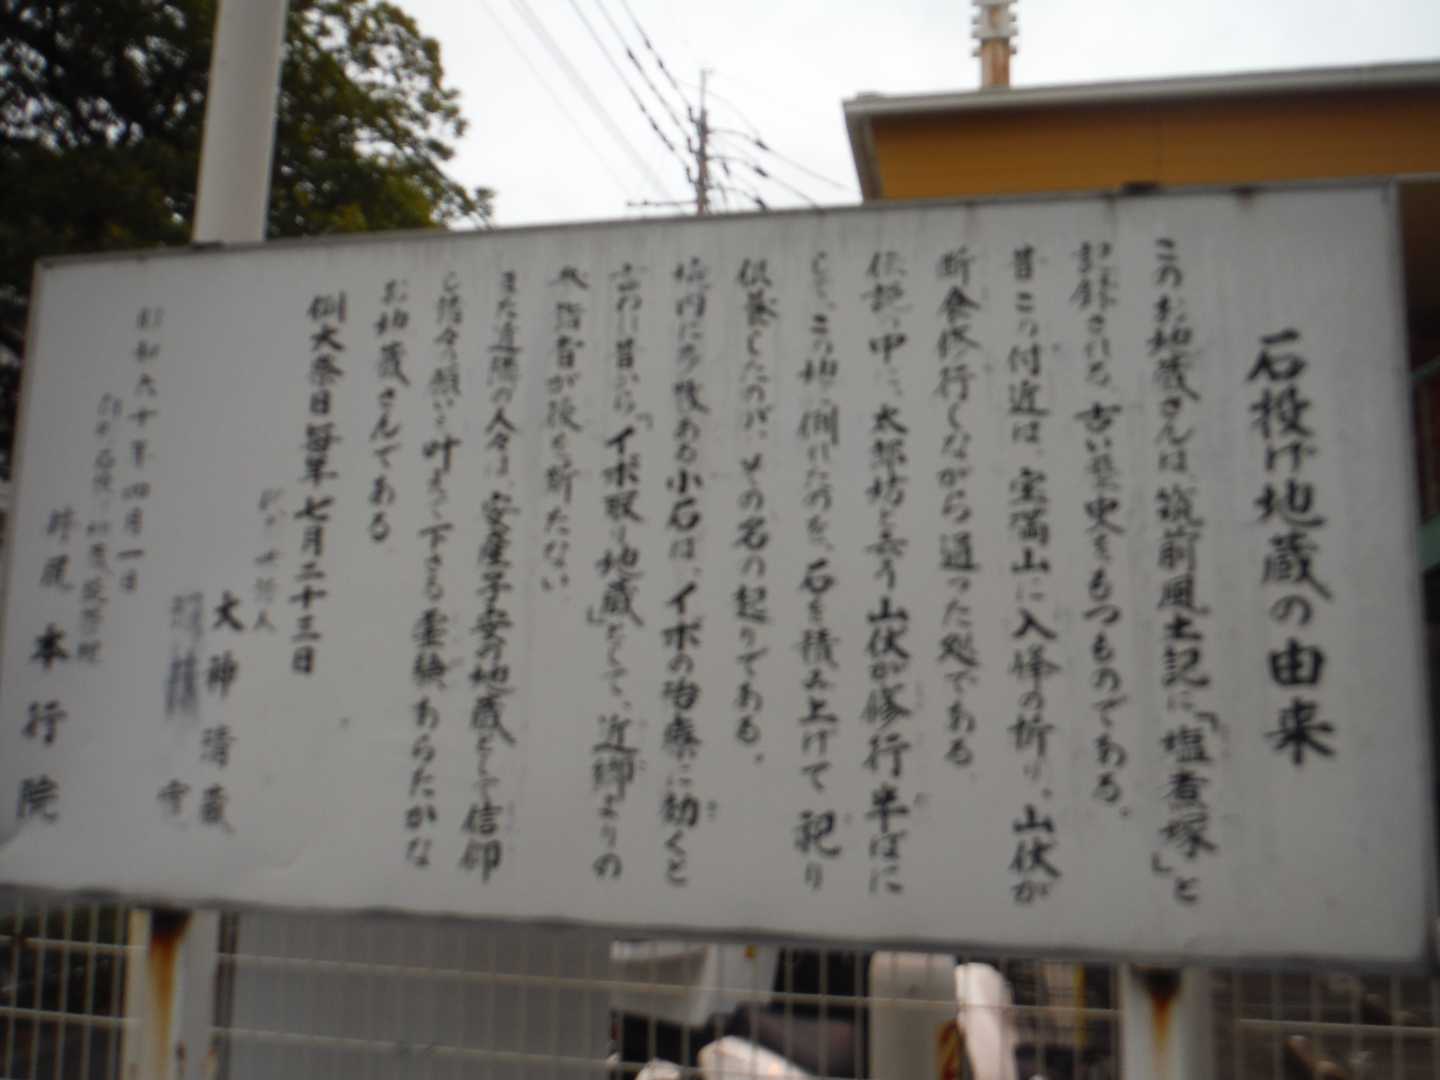 石投げ地蔵の由来
このお地蔵さんは、筑前風土記に「塩煮塚」と
記録される、古い歴史をもつものである。
昔この付近は、宝満山に入峰の折り、山伏が
断食修行しながら通った処である
伝説の中に、太郎坊と云う山伏が修行半ばに
して、この地に倒れたのを、石を積み上げて祀り
供養したのが、その名の起りである。
境内に多数ある小石は、イボの治療に効くと
云われ昔から「イボ取り地蔵」として、近郷よりの
参詣者が後を断たない
また近隣の人々は、安産子安の地蔵として信仰
し諸々の願いを叶えて下さる霊験あらたかな
お地蔵さんである
例大祭日毎年七月二十三日
世話人
大神清蔵
昭和六十年四月一日
井尻 本行院